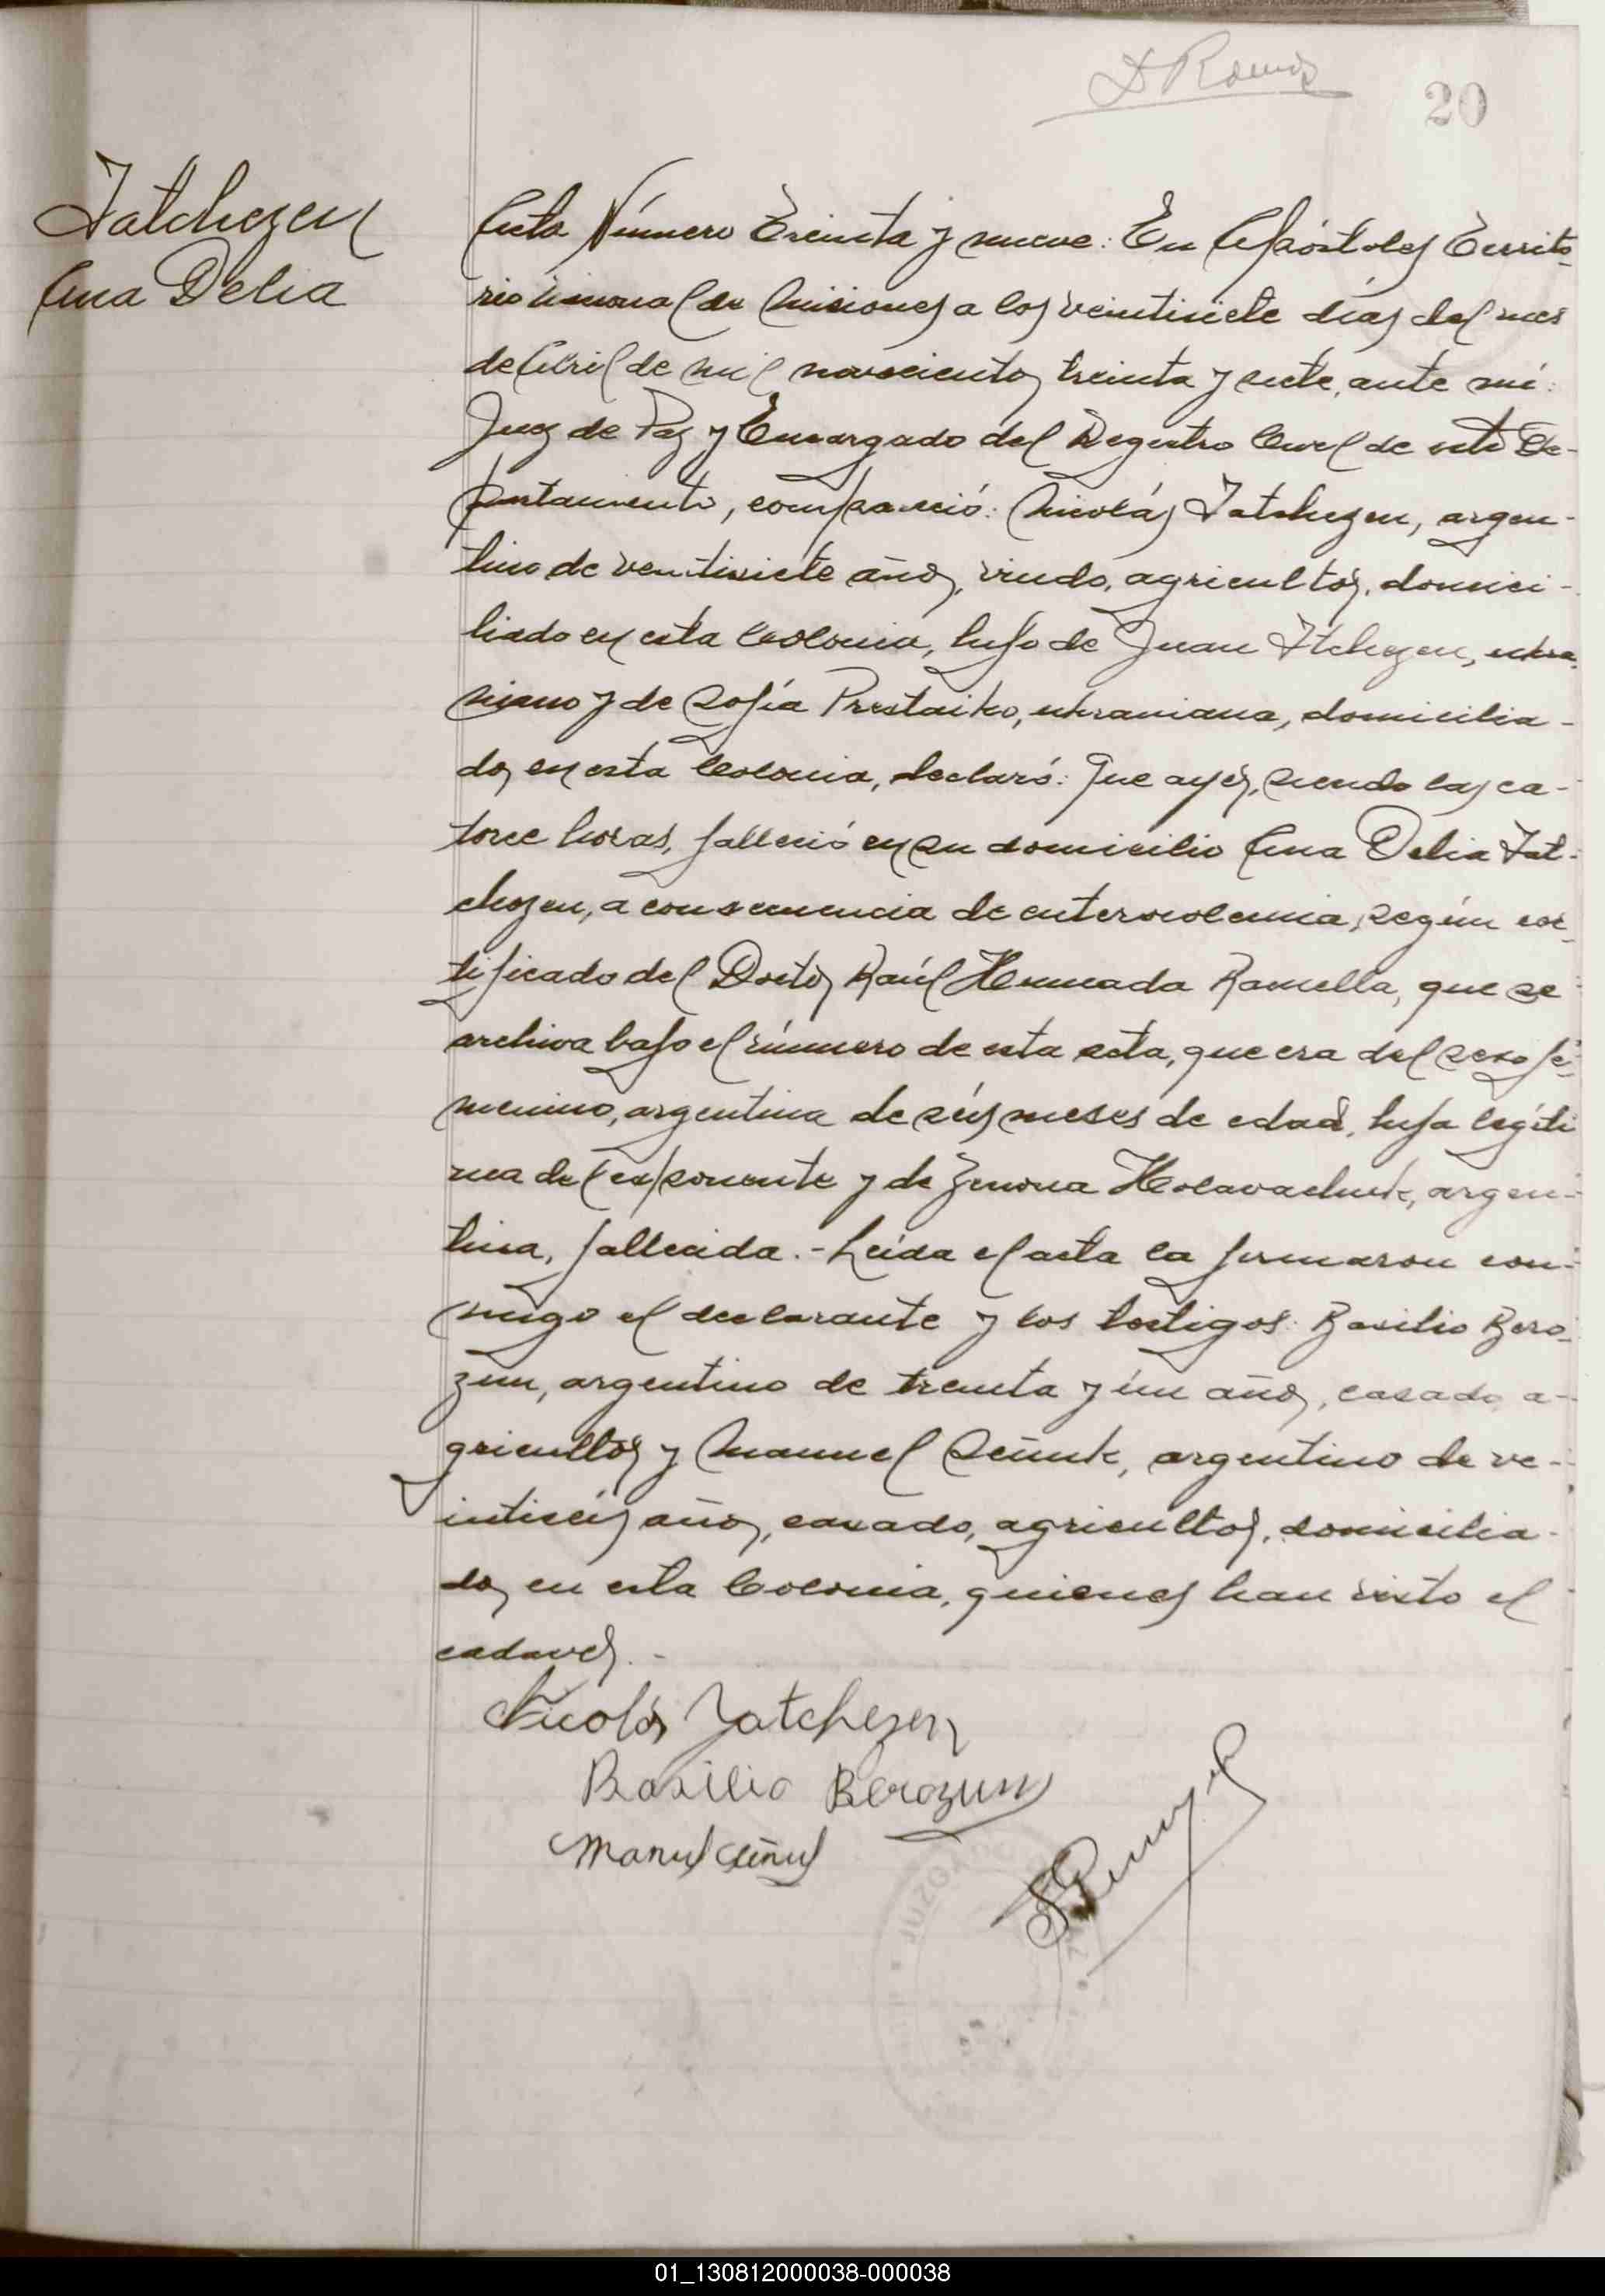 20
Jatchezen
Ana Delia
Acta Número Treinta y nueve: En Apóstoles Territo-
rio Nacional de Misiones a los veintisiete días del mes
de Abril de mil novecientos treinta y siete, ante mí:
Juez de Paz y Encargado del Registro Civil de este De-
partamento, compareció: Nicolás Jatchezen, argen-
tino de veintisiete años, viudo, agricultor, domici-
liado en esta Colonia, hijo de Juan Jtchezen, ukra-
niano y de Sofía Prestaiko, ukraniana, domicilia-
dos en esta Colonia, declaró: Que ayer, siendo las ca-
torce horas, falleció en su domicilio Ana Delia Jat-
chezen, a consecuencia de enterocolemia, según cer-
tificado del Doctor Raúl Ramella, que se
archiva bajo el número de esta acta, que era del sexo fe-
menino, argentina de séis meses de edad, hija legíti
ma del exponente y de Zenona Holavachuk, argen-
tina, fallecida.- Leída el acta la firmaron con-
migo el declarante y los testigos: Basilio Bero-
zun, argentino de treinta y ún años, casado, a-
gricultor y Manuel Señuk, argentino de ve-
intiséis años, casado, agricultor, domicilia-
dos en esta Colonia, quienes han visto el
cadaver.-
Nicolás Jatchezen
Basilio Berozun
Manuel Señuk
JUZGADO
01_130812000038-000038